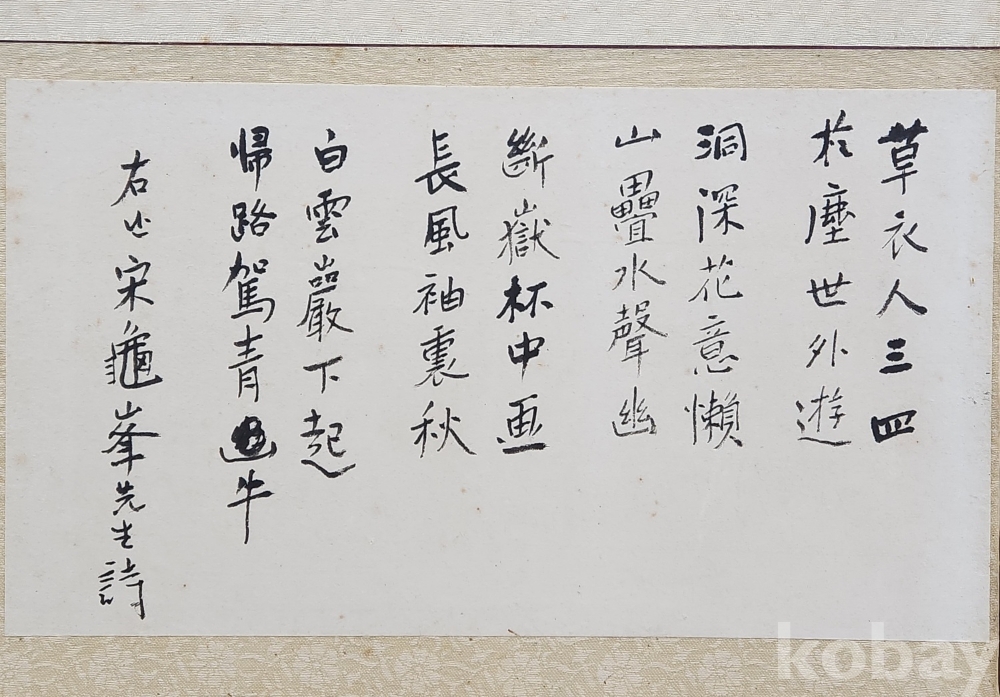 草衣人三四
於塵世外遊
洞深花意懶
山疊水聲幽
斷嶽杯中画
長風袖裏秋
白雲巖下起
歸路駕青牛
右宋龜峯先生詩
kobay